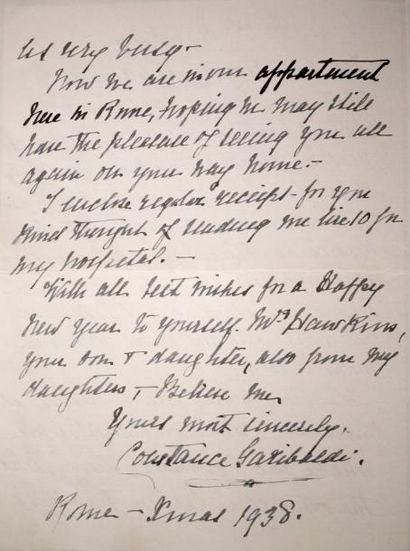 us very busy -
Now we are in our appartment
here in Rome, hoping we may still
have the pleasure of seeing you all
again on your way home. -
I enclose regular receipt - for you
kind thought of sending me lire 50 for
my hospital. -
With all best wishes for a Happy
New Year to yourself Mrs Hawkins,
your son & daughter, also from my
daughters, & Believe me,
Yours most sincerely.
Constance Garibaldi.
Rome - Xmas 1938.